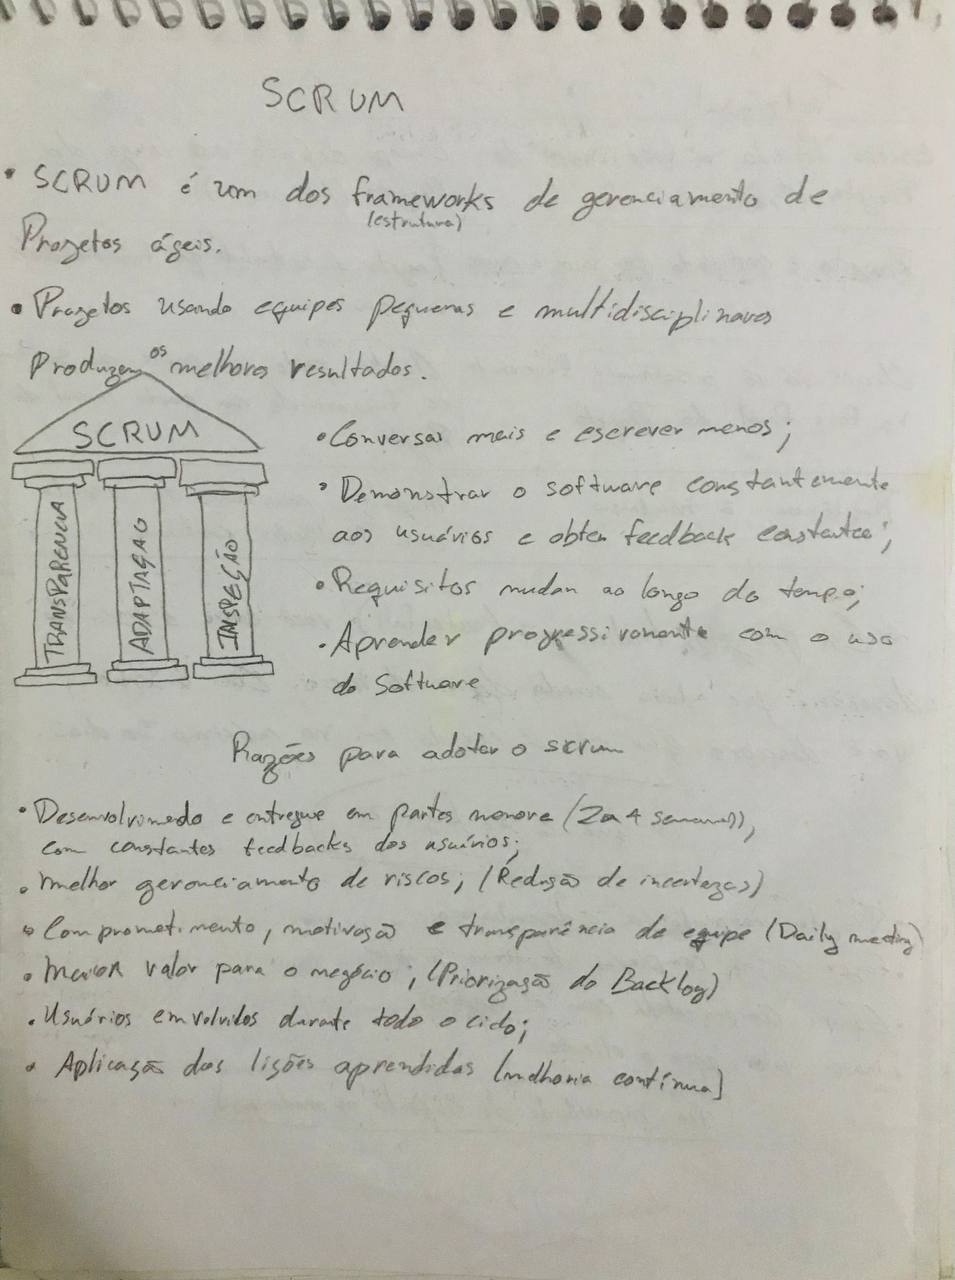 SCRUM
• SCRUM é um dos frameworks de gerenciamento de
(estrutura)
Projetos ágeis.
• Projetos usando equipes pequenas e multidisciplinares
Produzem os melhores resultados.
SCRUM
TRANSPARENCIA
ADAPTAÇAO
INSPEÇÃO
• Conversar mais e escrever menos;
• Demonstrar o software constantemente
aos usuários e obter feedback constantes;
• Requisitos mudam ao longo do tempo;
• Aprender progressivamente com o uso
do Software
Razões para adotar o scrum
• Desenvolvimedo e entregue em partes menore (2 a 4 semanas)),
com constantes feedbacks dos usuários;
• Melhor gerenciamento de riscos; (Redução de incertezas)
• Comprometimento, motivação e transparência de equipe (Daily meeting)
• Maior valor para o negócio; (Priorização do Backlog)
• Usuários emvolvidos durante todo o ciclo;
• Aplicação das lições aprendidas (melhoria contínua)